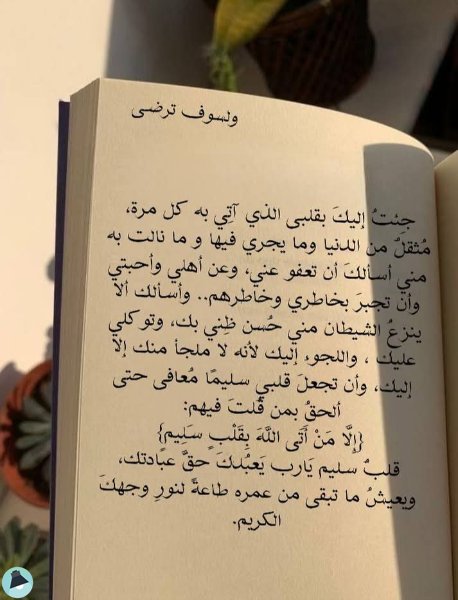 ولسوف ترضى
جِئتُ إليكَ بقلبى الذي آتِي به كل مرة،
مُثقلٌ من الدنيا وما يجري فيها و ما نالت به
مني أسألكَ أن تعفو عني، وعن أهلي وأحبتي
وأن تجبرَ بخاطري وخاطرهم.. وأسألك ألا
ينزعُ الشيطان مني حُسن ظِني بك، وتوكلي
عليك ، واللجوء إليك لأنه لا ملجأ منك إلاّ
إليك، وأن تجعلَ قلبي سليمًا مُعافى حتى
ألحقُ بمن قُلتَ فيهم:
{إِلَّا مَنْ أَتَى اللَّهَ بِقَلْبٍ سَلِيمٍ}
قلبٌ سليم يَارب يَعبُدكَ حقَّ عبادتك،
ويعيشُ ما تبقى من عمره طاعةً لنورِ وجهكَ
الكريم.